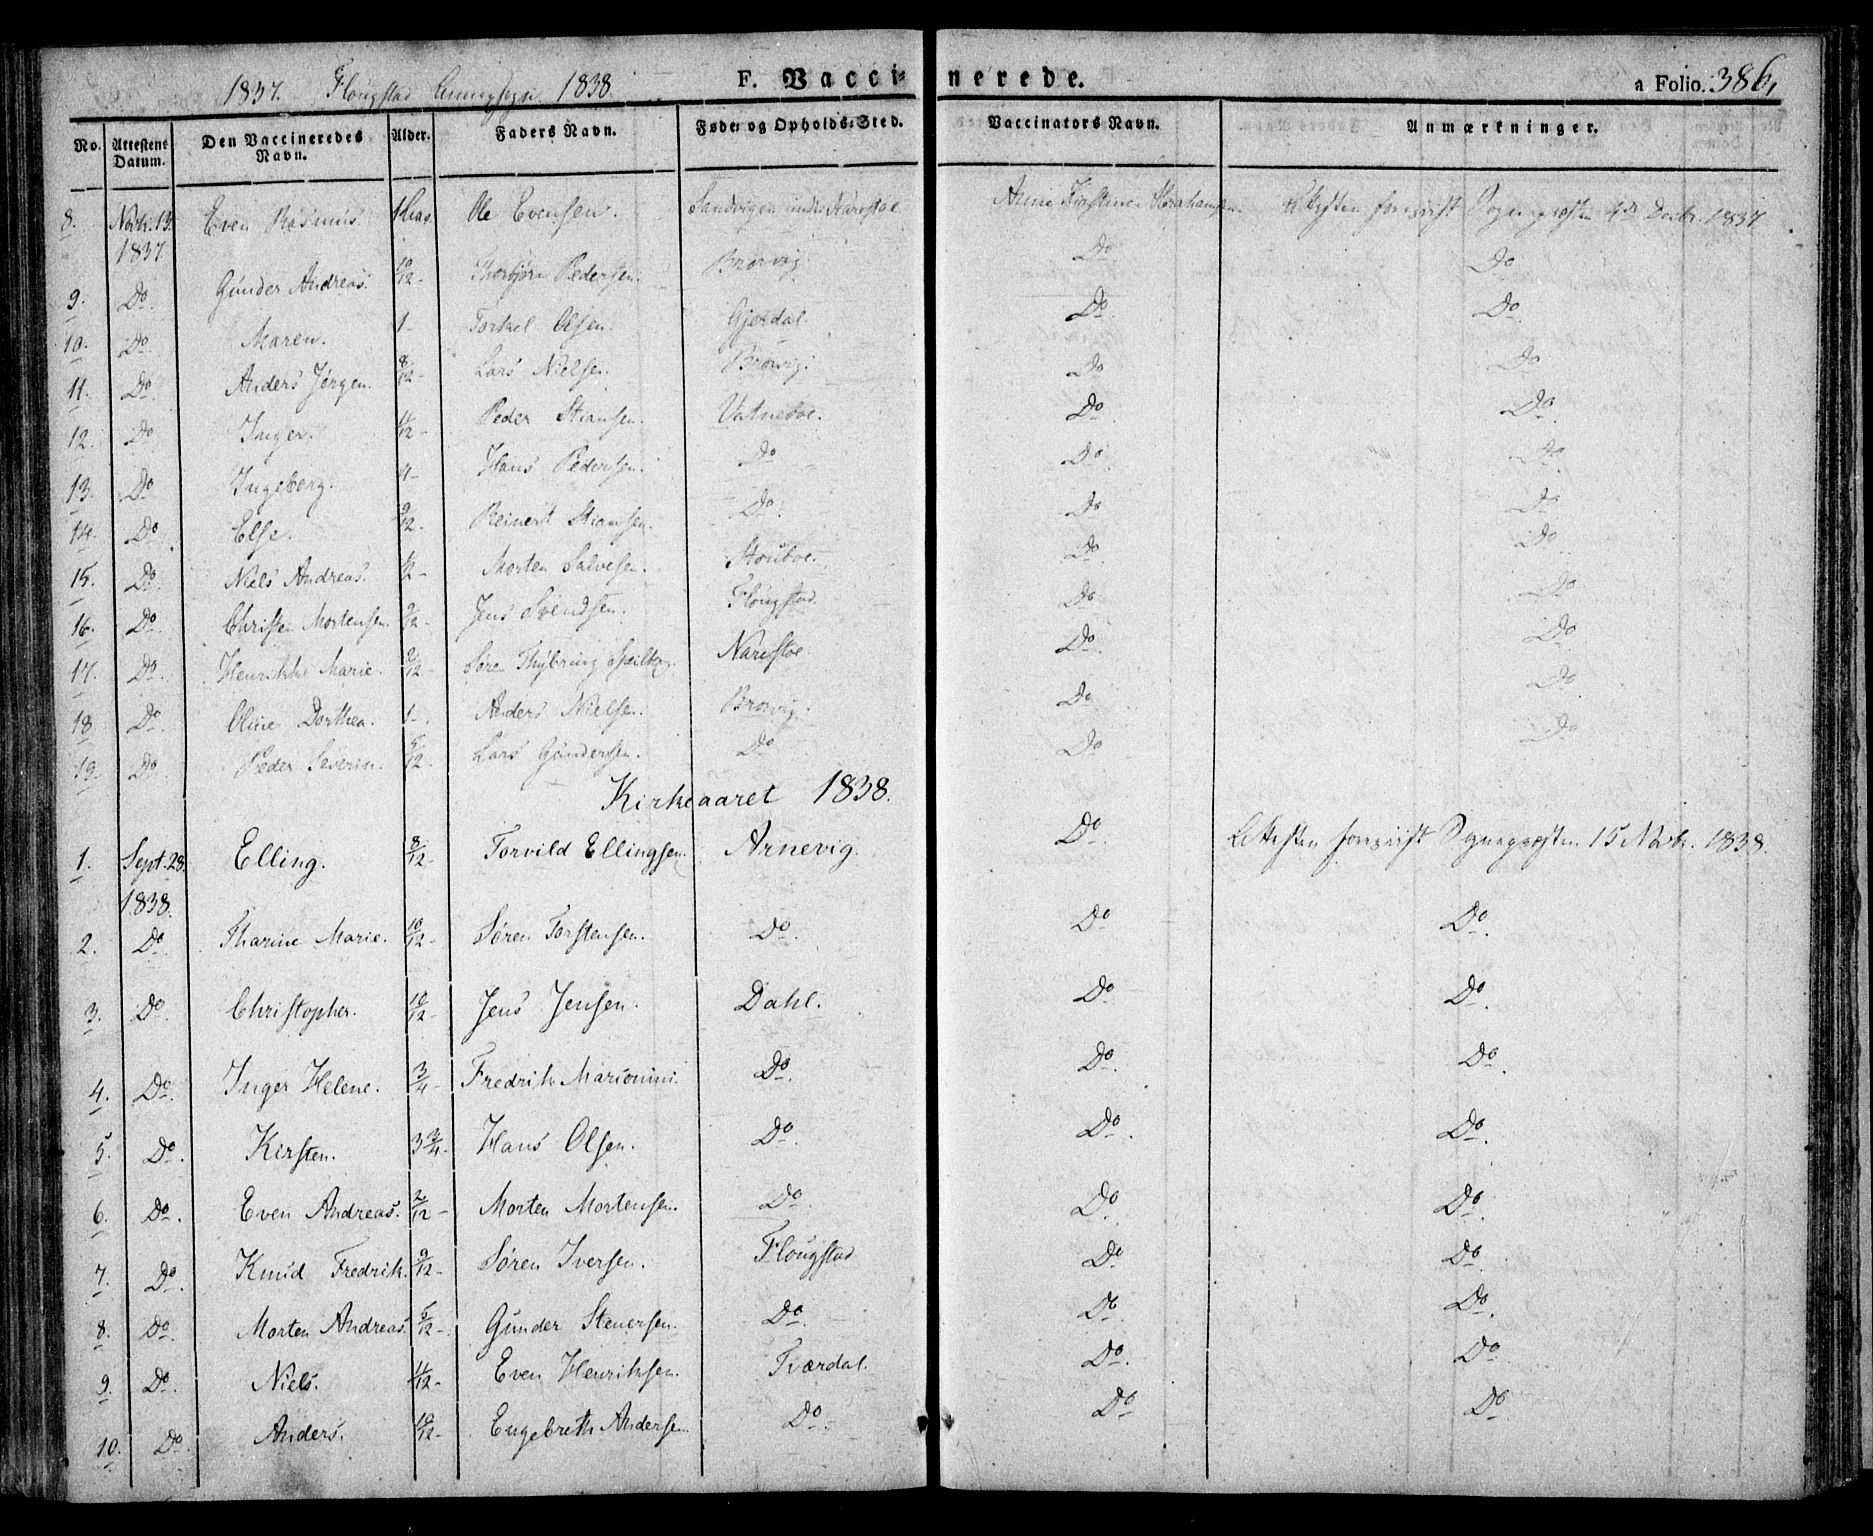 1837. Flougstad 1838. F. Vaccinerede. a Folio. 386,
No. Attestens Datum. Den Vaccineredes Navn. Alder. Faders Navn. Føde- og Opholds-Sted. Vaccinators Navn. Anmærkninger.
8. Novbr. 13. 1837 Even Rasmus 1 Ole Evensen. Sandvigen under Narestøe Anne Kirstine Abrahamsen. Attesten foreviist Sognepræsten Decbr. 1837
9. Do. Gunder Andreas. 10/12 - Thorbjørn Pedersen. Brovig. Do Do
10. Do Maren. 1 - Torkel Olsen. Gjerdal. Do. Do.
11. Do. Anders Jørgen. 8/12 - Lars Nielsen. Brovig. Do Do
12. Do Inger. 11/12 - Peder Stiansen. Vatneboe. Do Do
13. Do Ingeborg. 4 - Hans Pedersen. Do Do Do
14. Do Else. 9/12 - Reinert Stiansen. Do. Do Do
15. Do. Niels Andreas. 1/2 - Morten Salvesen. Stouboe. Do Do
16. Do. Christen Mortensen. 9/12 - Jens Svendsen. Flougstad. Do Do
17. Do. Henrikke Marie. 2/12 - Thybring Narestøe. Do. Do
18. Do. Oline Dorthea. 1 - Anders Nielsen. Brovig. Do Do
19. Do Peder Severin. 5/12 - Lars Gundersen. Do Do Do
Kirkeaaret 1838.
1. Sept. 28. 1838. Elling. 8/12 - Torvild Ellingsen. Arnevig. Do. Attesten foreviist Sognepræsten 15 Novbr. 1838.
2. Do. Tharine Marie. 10/12 - Søren Torstensen. Do. Do Do.
3. Do. Christopher. 10/12 - Jens Jensen. Dahl. Do Do.
4. Do. Inger Helene. 3/4 - Fredrik Marionini. Do. Do. Do.
5. Do. Kirsten. 3 3/4 - Hans Olsen. Do. Do. Do.
6. Do. Even Andreas. 2/12 - Morten Mortensen. Do. Do. Do.
7. Do. Knud Fredrik. 9/12 - Søren Iversen. Flougstad Do. Do.
8. Do. Morten Andreas. 5/12 - Gunder Stenersen. Do. Do Do.
9. Do. Niels. 11/12 - Even Henriksen. Tværdal. Do. Do
10. Do. Anders. 10/12 - Engebreth Andersen. Do. Do Do